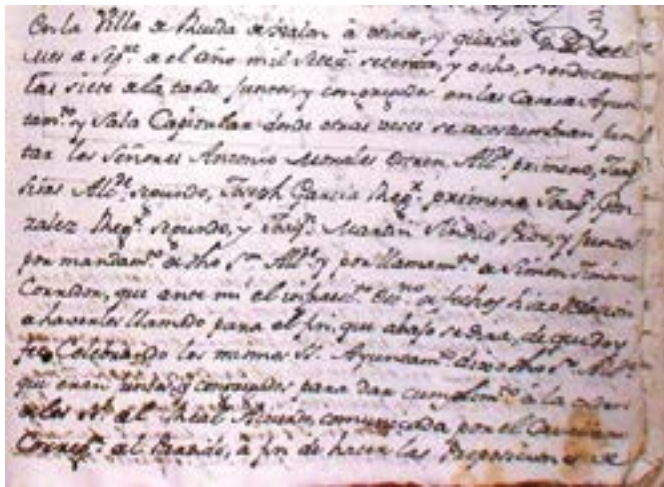 En la Villa de Rueda de Xalon à veinte, y quatro
mes de Sepre. de el año mil setecs. setenta, y ocho, siendo como
las siete de la tarde juntos, y congregados en las Casas de Ayun
tamto. y Sala Capitular donde otras veces se acostumbran jun
tar los Señores Antonio Morales Alde. primero,
Alde. segundo, Joseph Garcia Regr. primero Joaqn. Gon
zalez Regr. segundo, y Joaqn. Martin Sindico Pror., y juntos
por mandamto. de dho Sr. Alde. y por llamamto. de Simon
Corredor, que ante mi el infraescto. Esno. de fechos hizo relacion
de haverles llamado para el fin, que abajo se dira, de que doy
fee Celebrando los mismos SS. Ayuntamto. dixo dho Sr. Alde.
que eran juntos, y congregados para dar cumplimto. à la orden
de los SS. del Real Acuerdo, comunicada por el Cavallero
Corregr. del Partido, à fin de hacer las Proposiciones de